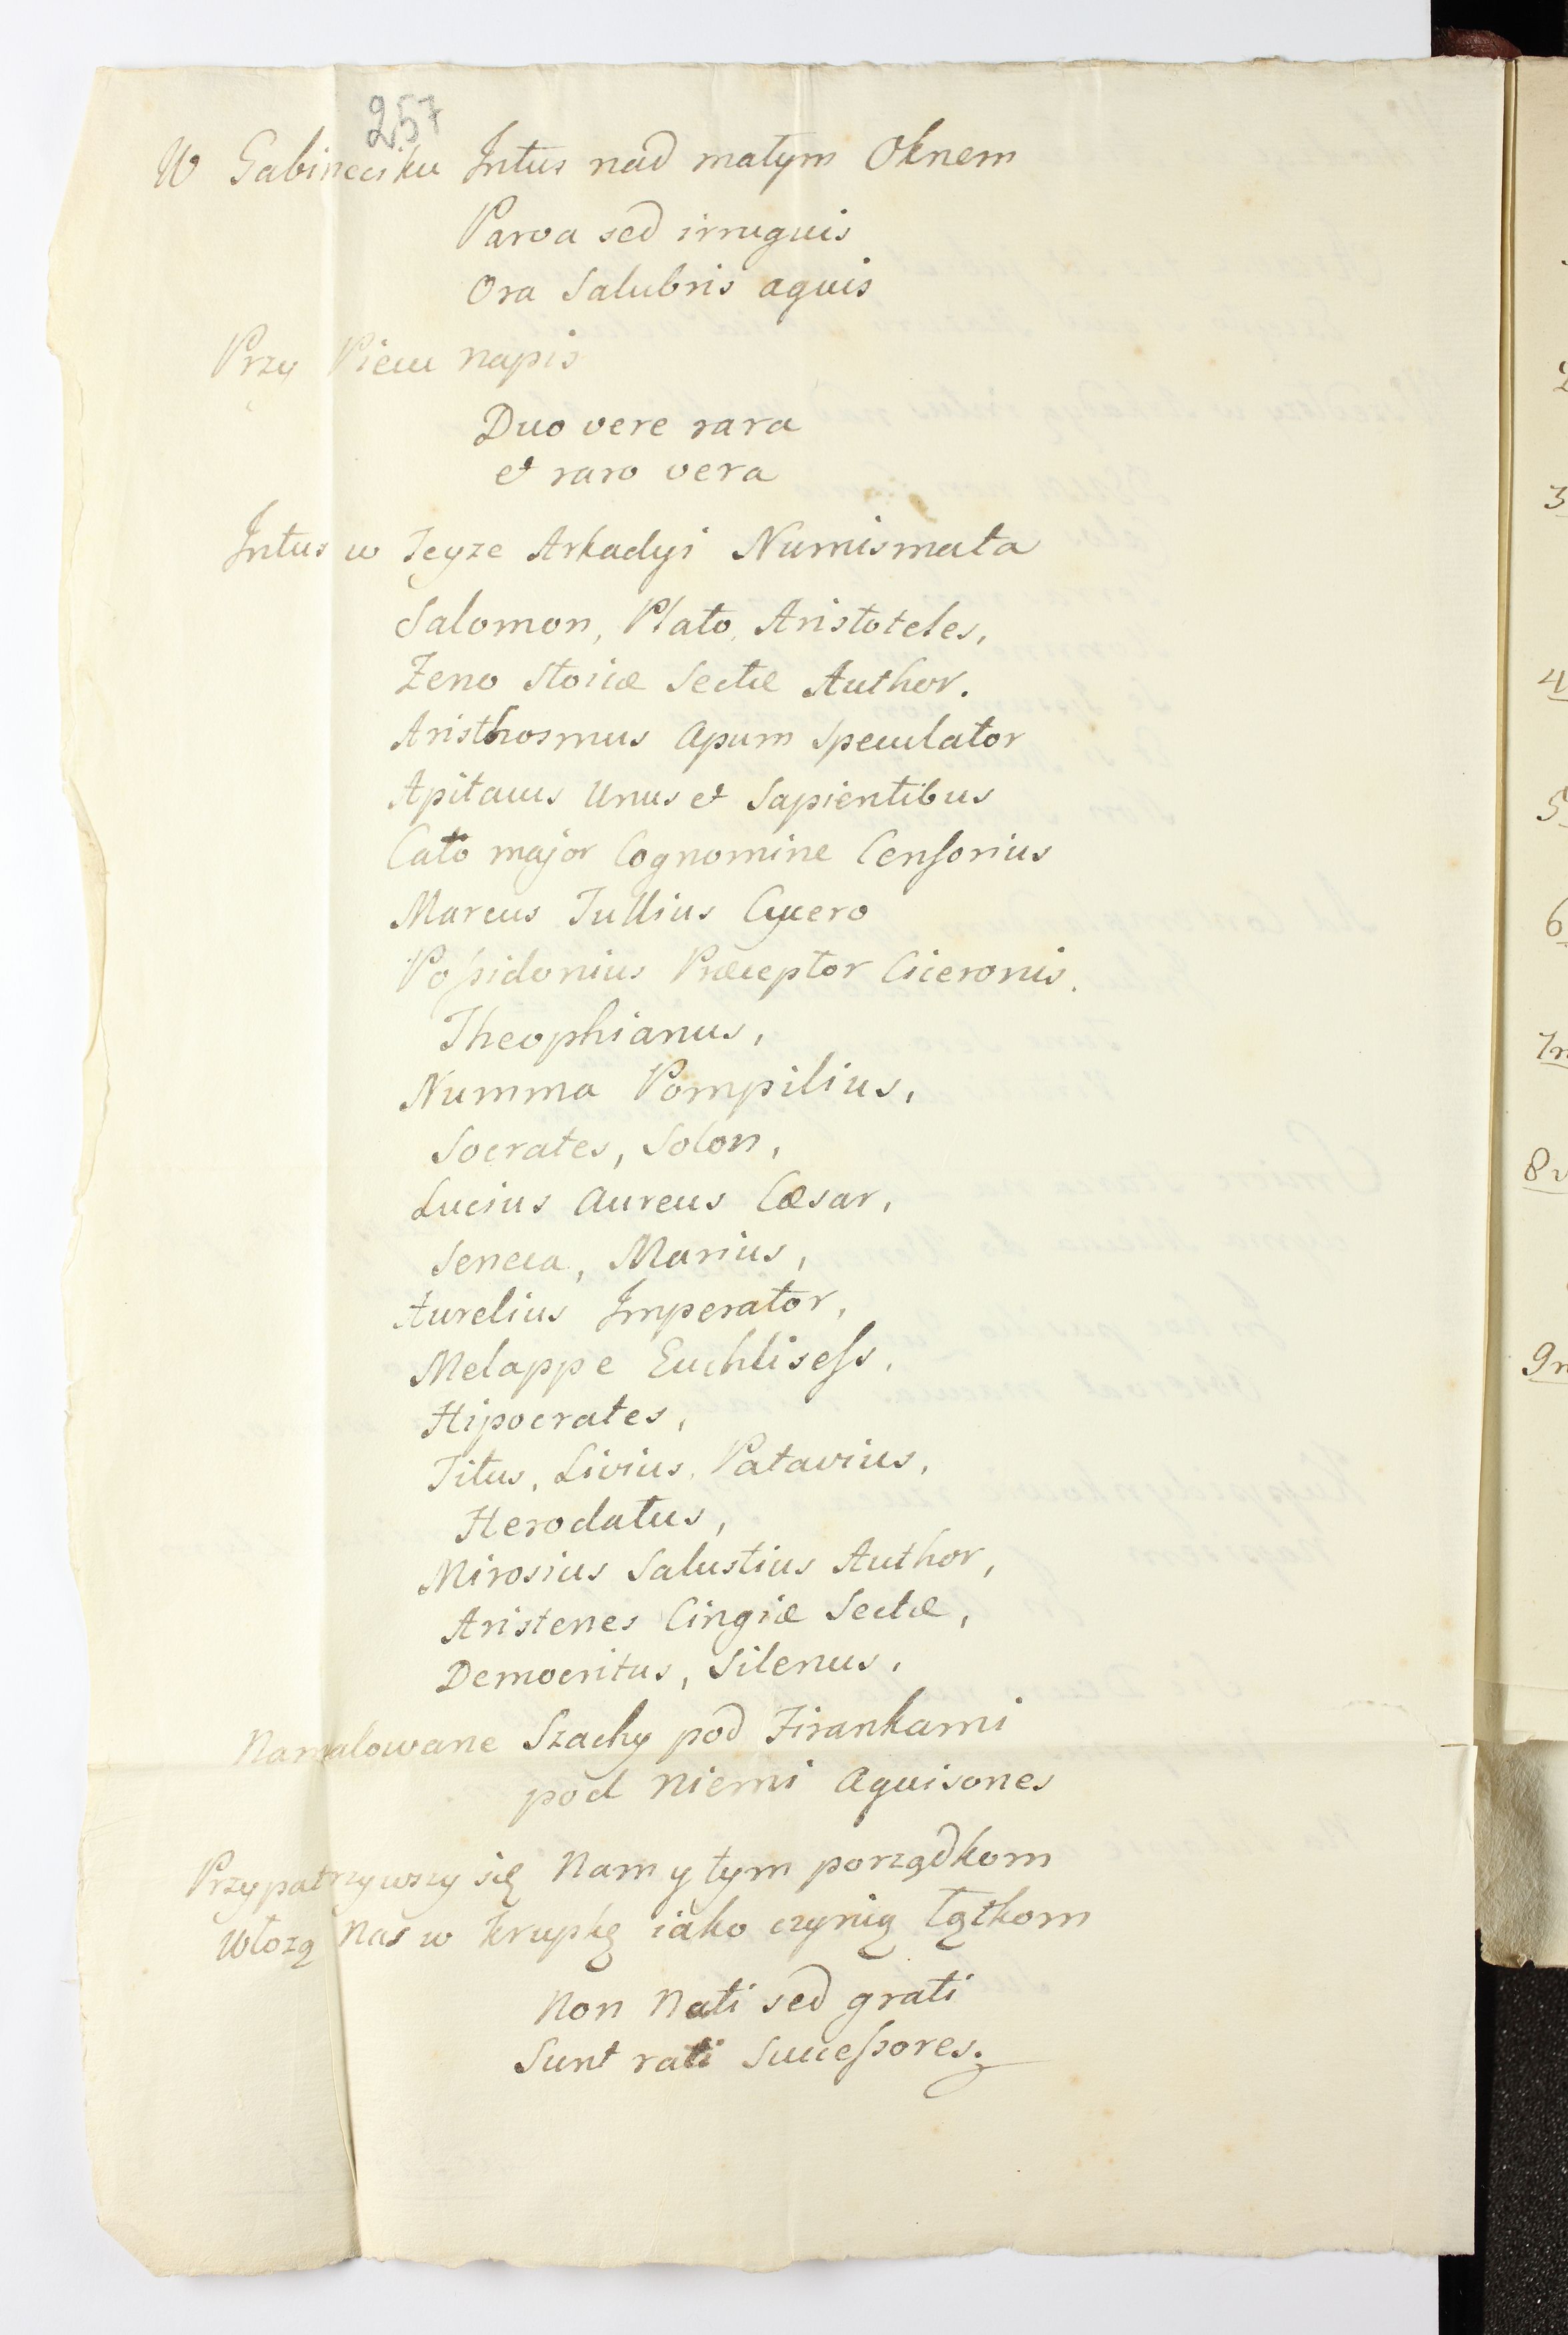 257
W Gabineciku Intus nad małym Oknem
Parva sed irruguis
Ora Salubris aquis
Przy Piecu napis
Duo vere rara
et raro vera
Intus w Teyze Arkadyi Numismata
Salomon, Plato, Aristoteles,
Zeno Stoicæ Sectæ Author.
Aristhosmus Apum Speculator
Apitacus Unus et Sapientibus
Cato major Cognomine Censorius
Marcus Tullius Cycero
Possidonius Præceptor Ciceronis.
Theophianus,
Numma Pompilius,
Socrates, Solon,
Lucius Aureus Cæsar,
Seneca, Marius,
Aurelius Imperator,
Melappe Euchlisess,
Hipocrates,
Titus, Livius, Patavius,
Herodatus,
Mirosius Salustius Author,
Aristenes Cingiæ Sectæ,
Democritus, Silenus,
Namalowane Szachy pod Firankami
pod niemi Aquisones
Przypatrzywszy się Nam y tym porządkom
Włozą Nas w krupkę iako czynią łątkom
Non Nati sed grati
Sunt rati Successores.
3
4
5
6
7n
8v
9n